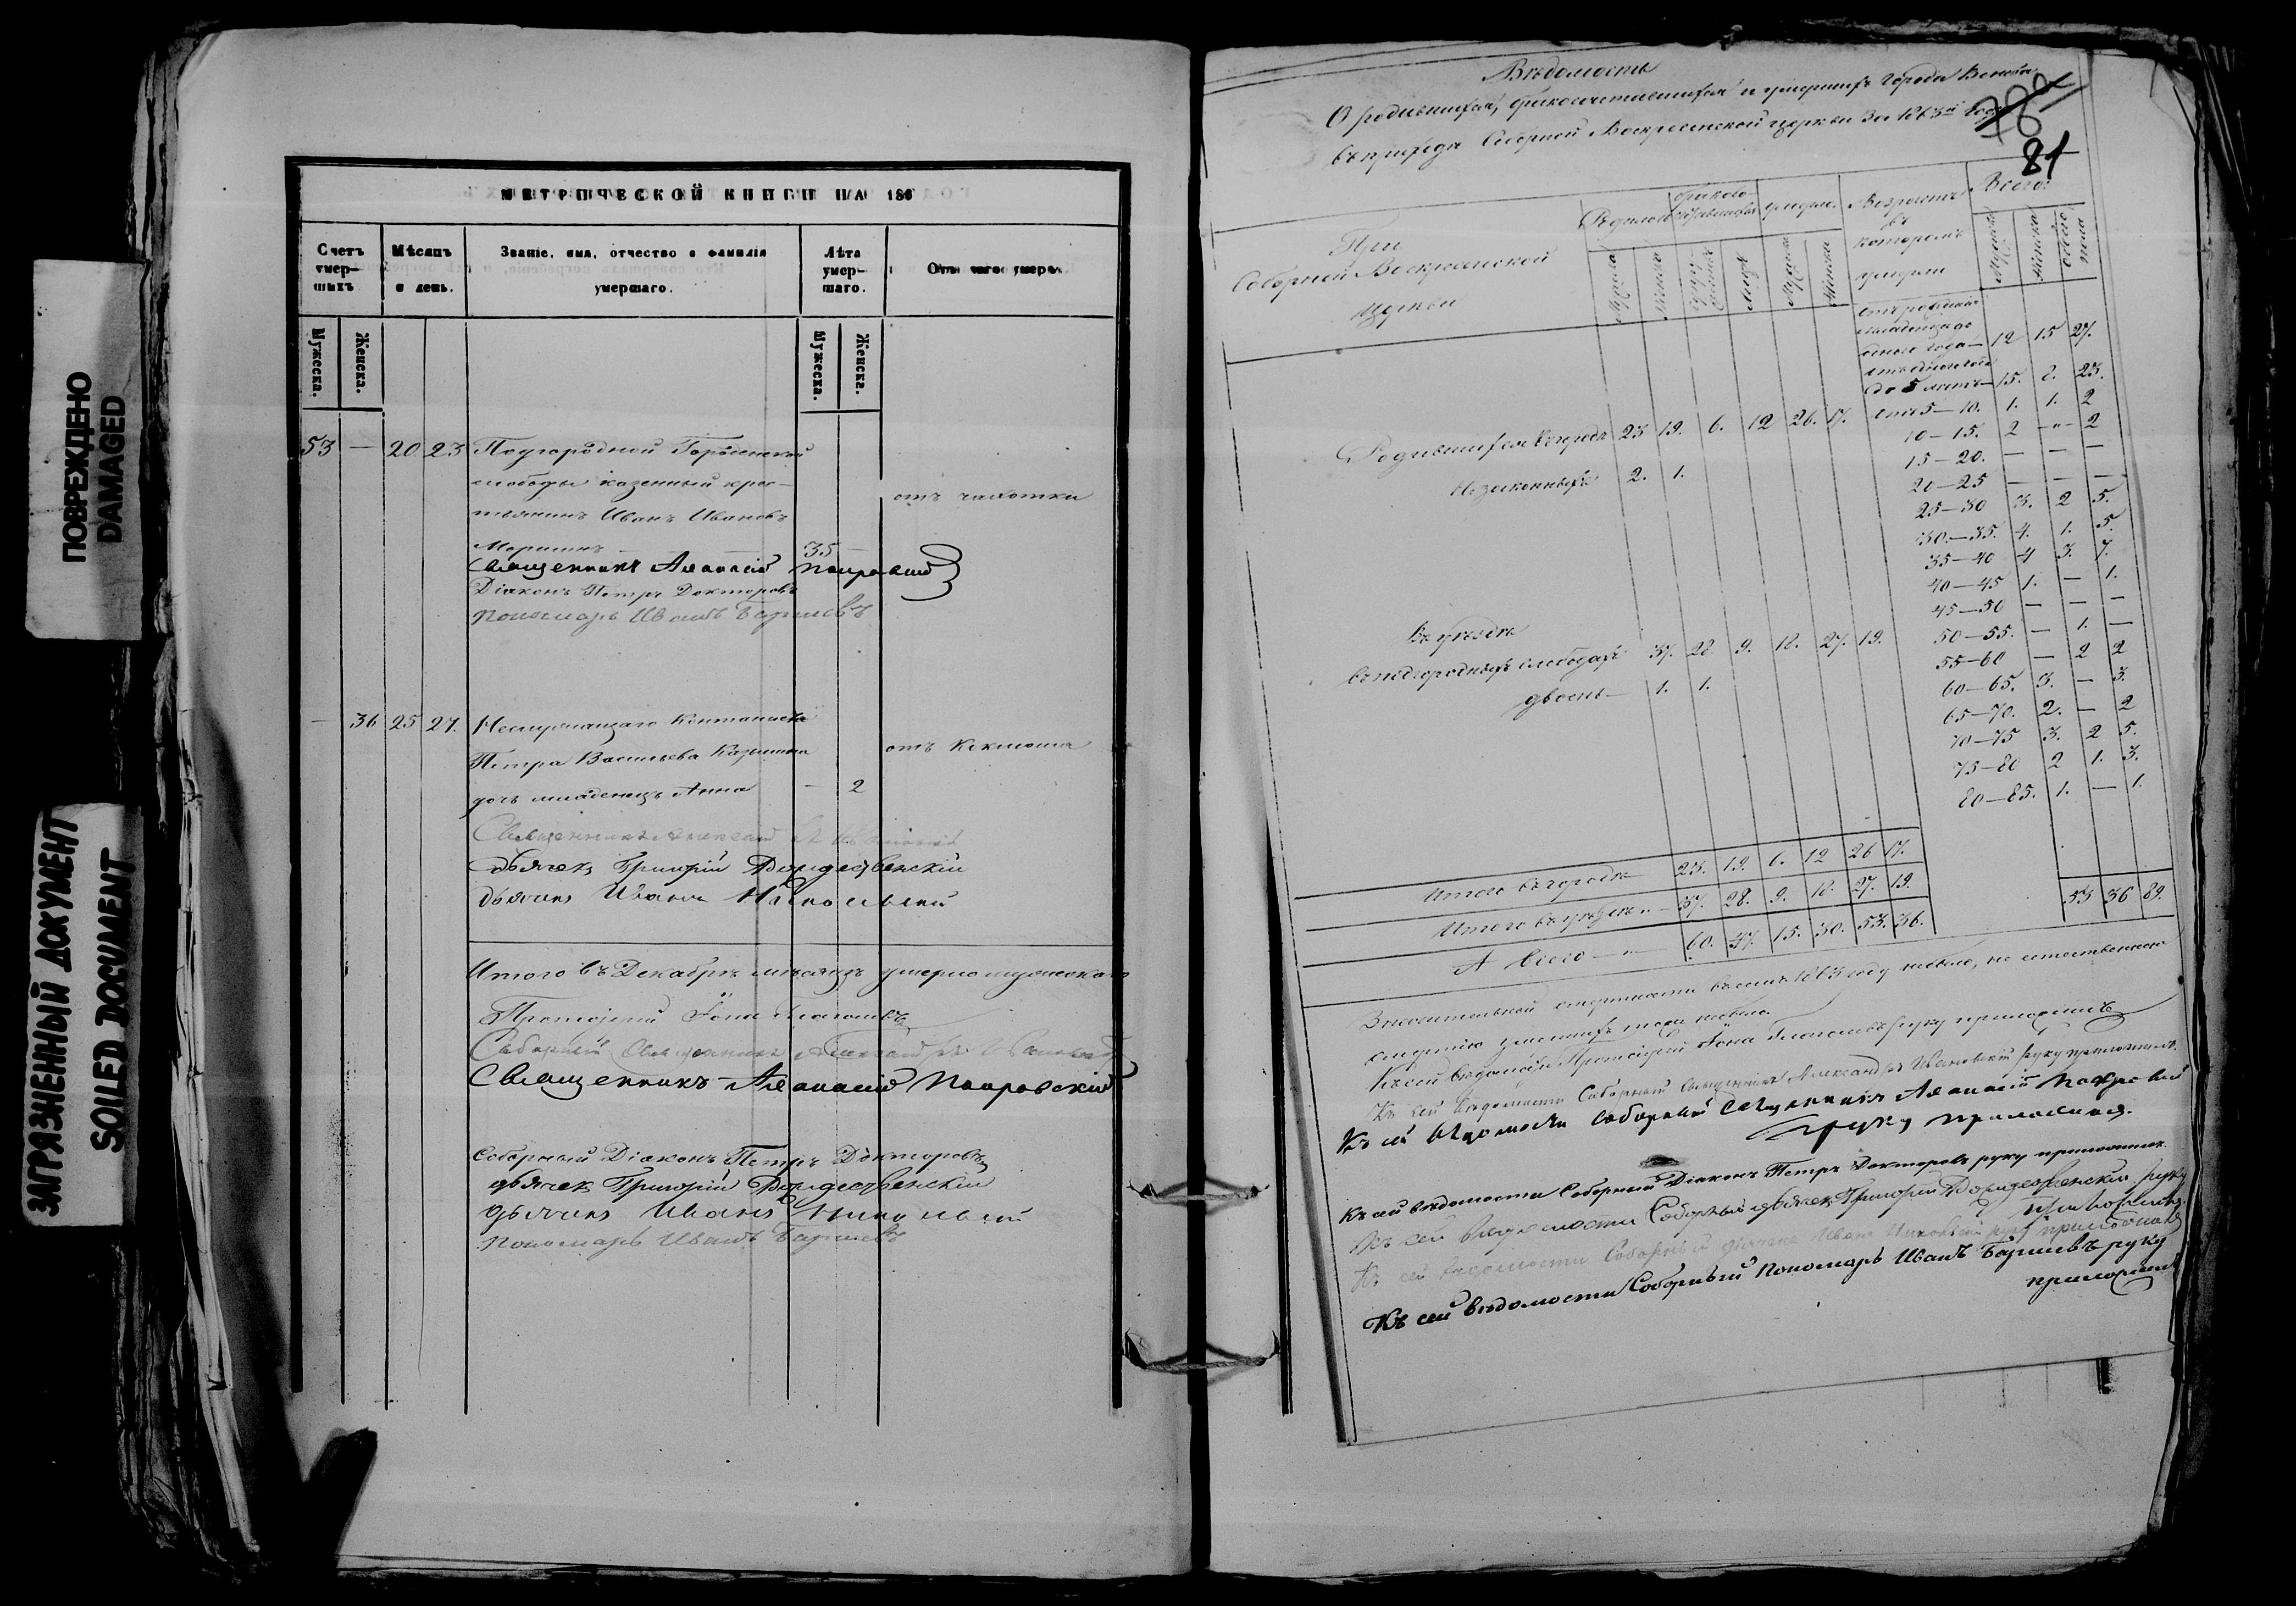 ПОВРЕЖДЕНО
DAMAGED
ЗАГРЯЗНЕННЫЙ ДОКУМЕНТ
SOILED DOCUMENT
МЕТРИЧЕСКОЙ КНИГИ НА 186
Счетъ умер-шихъ
Мѣсяцъ и день.
Званіе, имя, отчество и фамилія умершаго.
Лѣта умер-шаго.
Отъ чего умеръ.
Мужеска.
Женска.
Мужеска.
Женска.
53 — 20 23 Подгородной
слободы казенный крес-
тьянинъ Иванъ Ивановъ
отъ чахотки
35 —
Священникъ Аѳанасій Покровскій
Діаконъ Петръ Докторовъ
Пономарь Иванъ
— 36 25 27.
Петра Васильева
отъ коклюша
дочь младенецъ Анна — 2
Священникъ
дьячекъ Григорій Рождественскій
дьячекъ Иванъ Никольскій
Итого въ Декабрѣ мѣсяцѣ умерло мужескаго
Протоіерей Іона Глаголевъ
Соборный Священникъ Александръ Ивановскій
Священникъ Аѳанасій Покровскій
Соборный Діаконъ Петръ Докторовъ
дьячекъ Григорій Рождественскій
дьячекъ Иванъ Никольскій
Пономарь Иванъ
Вѣдомость
О родившихся, бракосочетавшихся и умершихъ города
въ приходѣ Соборной Воскресенской церкви за 1863й годъ
81
При
Соборной Воскресенской
церкви
Родилось
умерло
Возрастъ въ которомъ умерли
Всего
Мужеска
Женска
Мужеска
Женска
Мужеска
Женска
обоего пола
одного года — 12 15 27.
до 5 лѣтъ — 15. 8. 23.
Родившихся въ городѣ 23 19. 6. 12 26. 17.
отъ 5 — 10. 1. 1. 2
10 — 15. 2 — 2
15 — 20. — — —
Незаконныхъ 2. 1.
20 — 25 — — —
25 — 30 3. 2 5.
30. — 35. 4. 1. 5.
35 — 40 4 3. 7.
40 — 45 1. — 1.
45 — 50 — — —
Въ уѣздѣ
50 — 55. — 1. —
въ подгородныхъ слободахъ 37. 28 9. 18. 27. 19.
55 — 60 — 2 2
двоень — 1. 1.
60 — 65. 3. — 3.
65 — 70. 2. — 2
70 — 75 3. 2 5.
75 — 80 2 1. 3.
80 — 85. 1. — 1.
Итого въ городѣ 23. 19. 6. 12 26 17.
Итого въ уѣздѣ — 37. 28. 9. 18. 27. 19.
53 36 89.
А всего — 60. 47. 15. 30. 53. 36.
смертности въ семъ 1863 году небыло, не естественною
смертію умершихъ тоже небыло.
Къ сей вѣдомости Протоіерей Іона Глаголевъ руку приложилъ
Къ сей вѣдомости Соборный Священникъ Александръ Ивановскій руку приложилъ.
Къ сей вѣдомости соборный Священникъ Аѳанасій Покровскій
руку приложилъ.
Къ сей вѣдомости Соборный Діаконъ Петръ Докторовъ руку приложилъ.
Къ сей вѣдомости Соборный дьячекъ Григорій Рождественскій руку
приложилъ.
Къ сей вѣдомости Соборный дьячекъ Иванъ Никольскій руку приложилъ
Къ сей вѣдомости Соборный Пономарь Иванъ руку
приложилъ